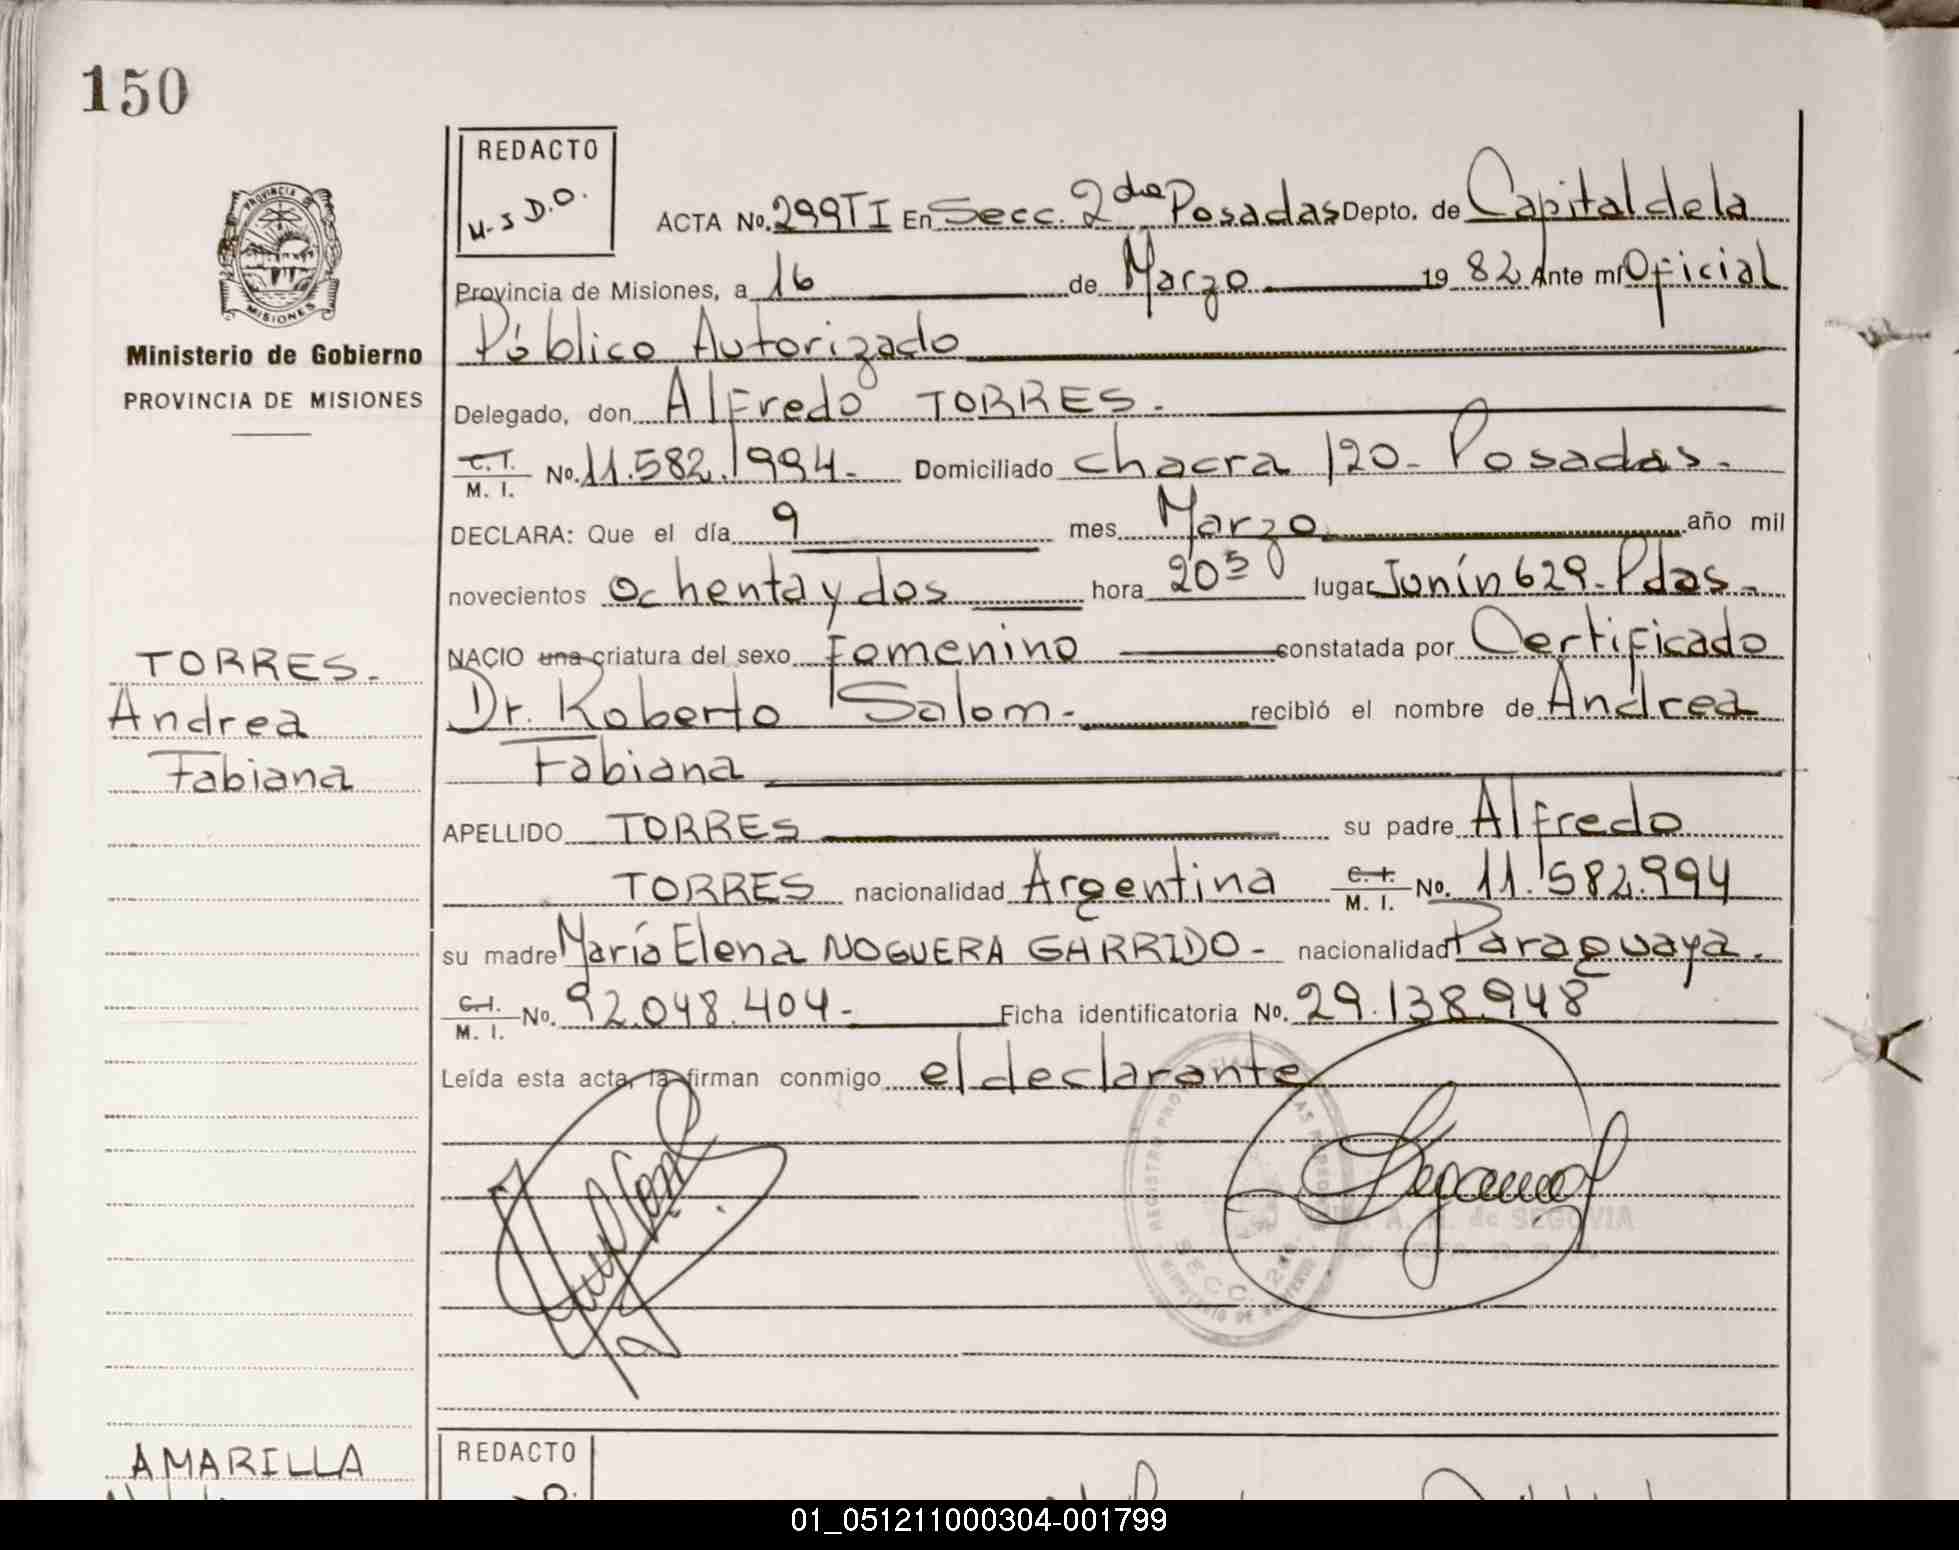 150
REDACTO
M.S D.O.
PROVINCIA DE
MISIONES
ACTA No. 299TI En Secc. 2da Posadas Depto. de Capital de la
Provincia de Misiones, a 16 de Marzo 19 82 Ante mí Oficial
Ministerio de Gobierno
Público Autorizado
PROVINCIA DE MISIONES
Delegado, don Alfredo TORRES.
C.I. M. I. No. 11.582.994. Domiciliado chacra 120. Posadas.
DECLARA: Que el día 9 mes Marzo año mil
novecientos ochenta y dos hora 20 30 lugar Junín 629. Pdas.
NACIO una criatura del sexo Femenino constatada por Certificado
TORRES.
Andrea
Fabiana
Dr. Roberto Salom. recibió el nombre de Andrea
Fabiana
APELLIDO TORRES su padre Alfredo
TORRES nacionalidad Argentina C.I. M. I. No. 11.582.994
su madre María Elena NOGUERA GARRIDO - nacionalidad Paraguaya.
C.I. M. I. No. 92.048.404. Ficha identificatoria No. 29.138.948
Leída esta acta, la firman conmigo el declarante
REGISTRO PROVINCIAL DE LAS PERSONAS
SECC. 2da.
MINISTERIO DE GOBIERNO
A. M. de SEGOVIA
AMARILLA
REDACTO
01_051211000304-001799